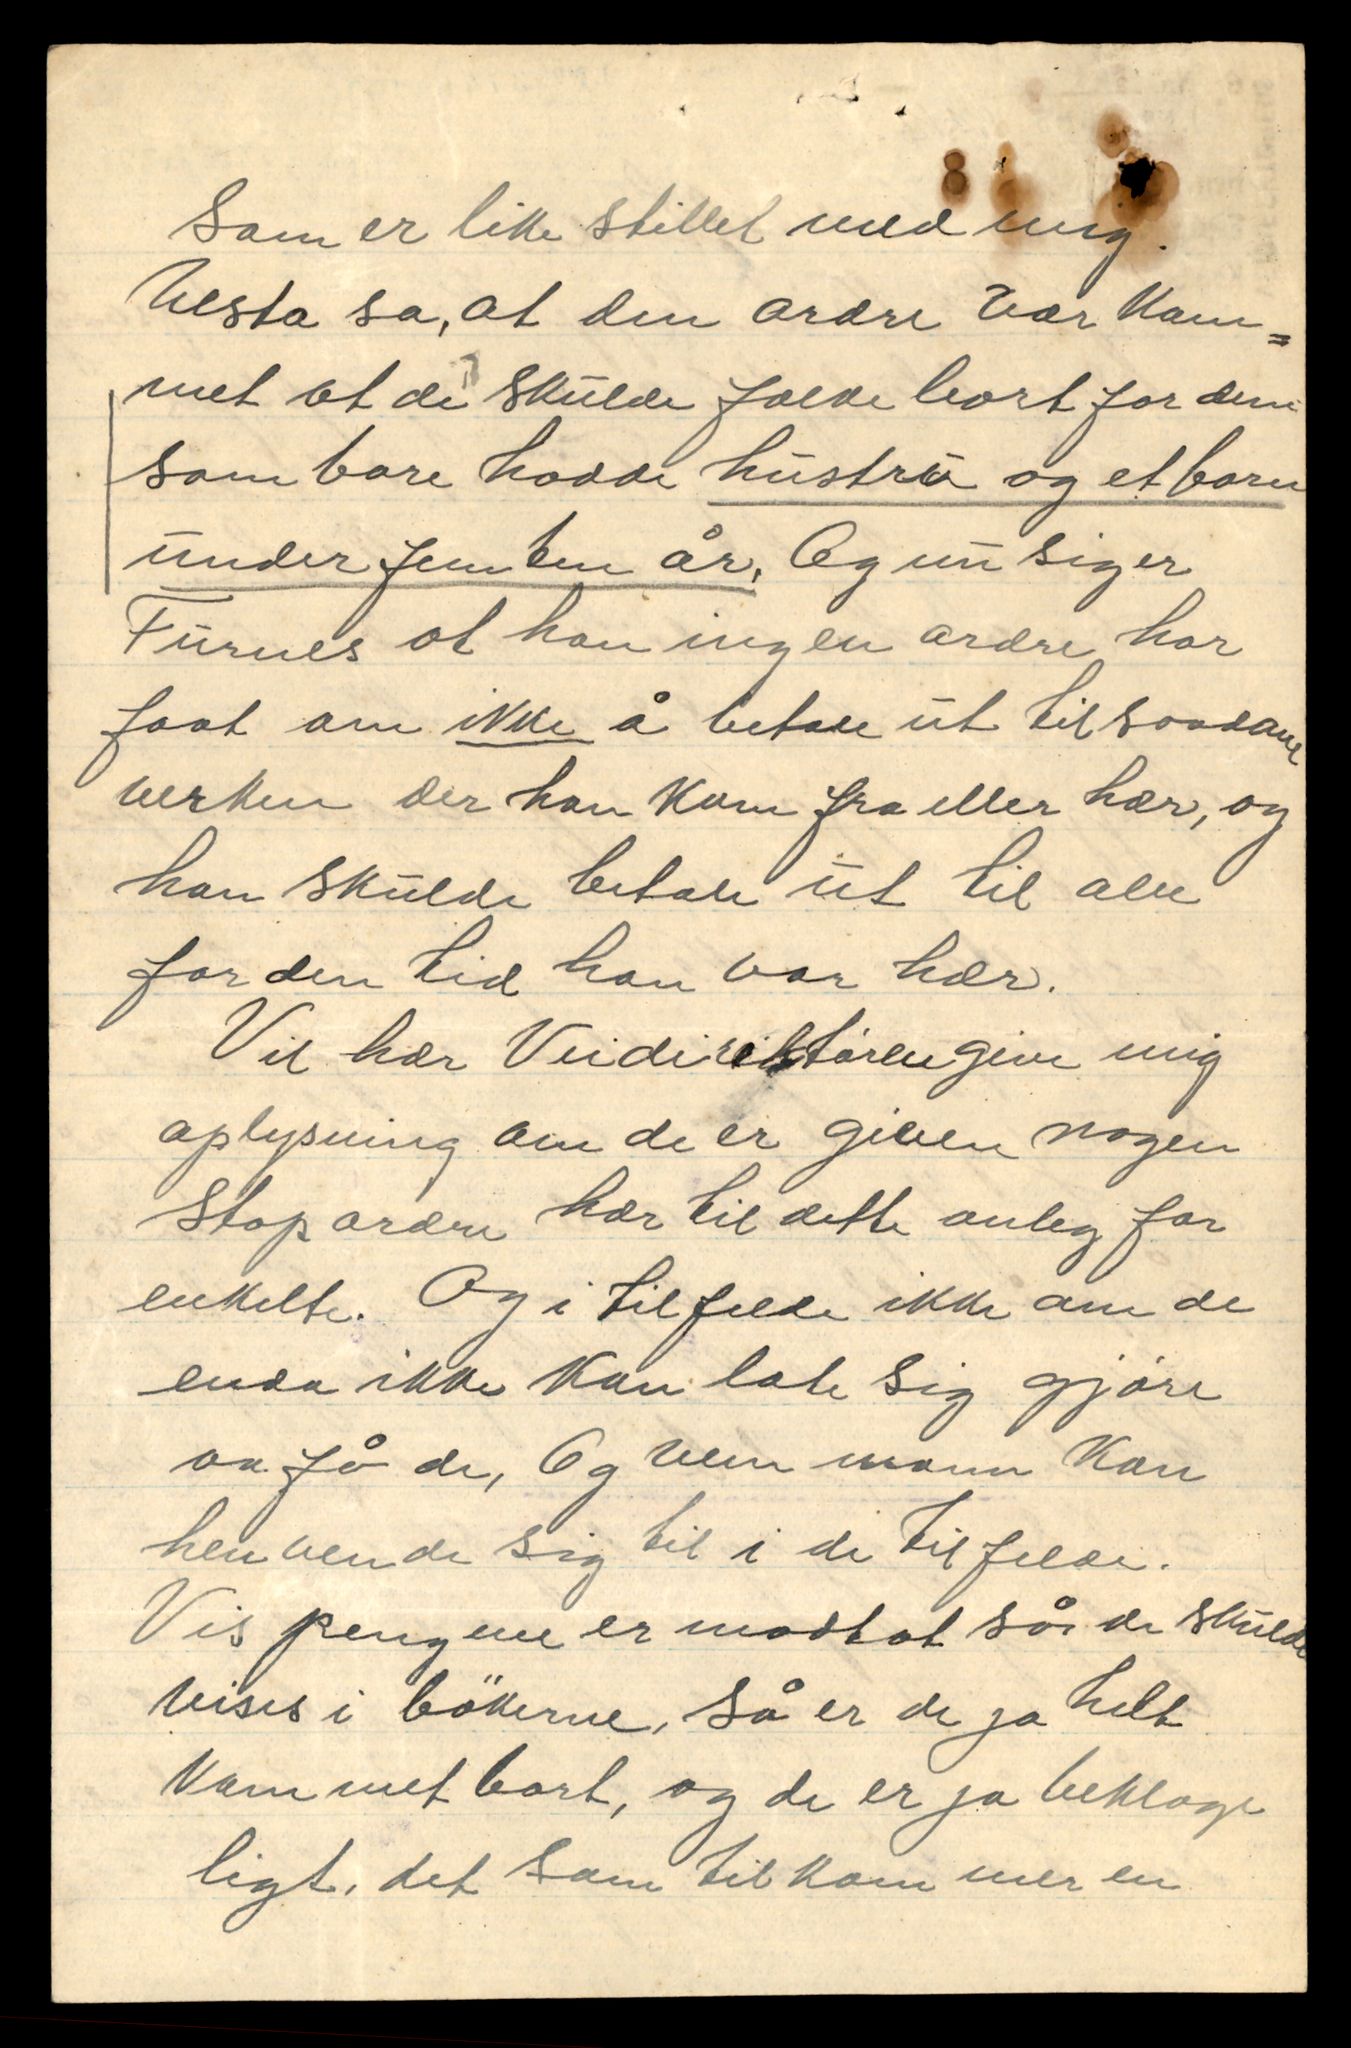 Som er like stillet med mig.
Vesta sa, at den ordre var kom=
met at de skulde falde bort for dem
som bare hadde hustru og et barn
under femten år. Og nu siger
Furnes at han ingen ordre har
faat om ikke å betale ut til saadane
verken der han kom fra eller hær, og
han skulde betale ut til alle
for den tid han var hær.
Vil hær Veidirektören give mig
oplysning om de er given nogen
Stop ordre hær til dette anleg for
enkelte. Og i tilfelde ikke om de
enda ikke kan late sig gjöre
aa få de, Og vem mann kan
henvende sig til i de tilfelde.
Vis pengene er modtat så de skulde
vises i bökerne, så er de ja helt
kommet bort, og de er ja beklage
ligt, det som tilkommer en